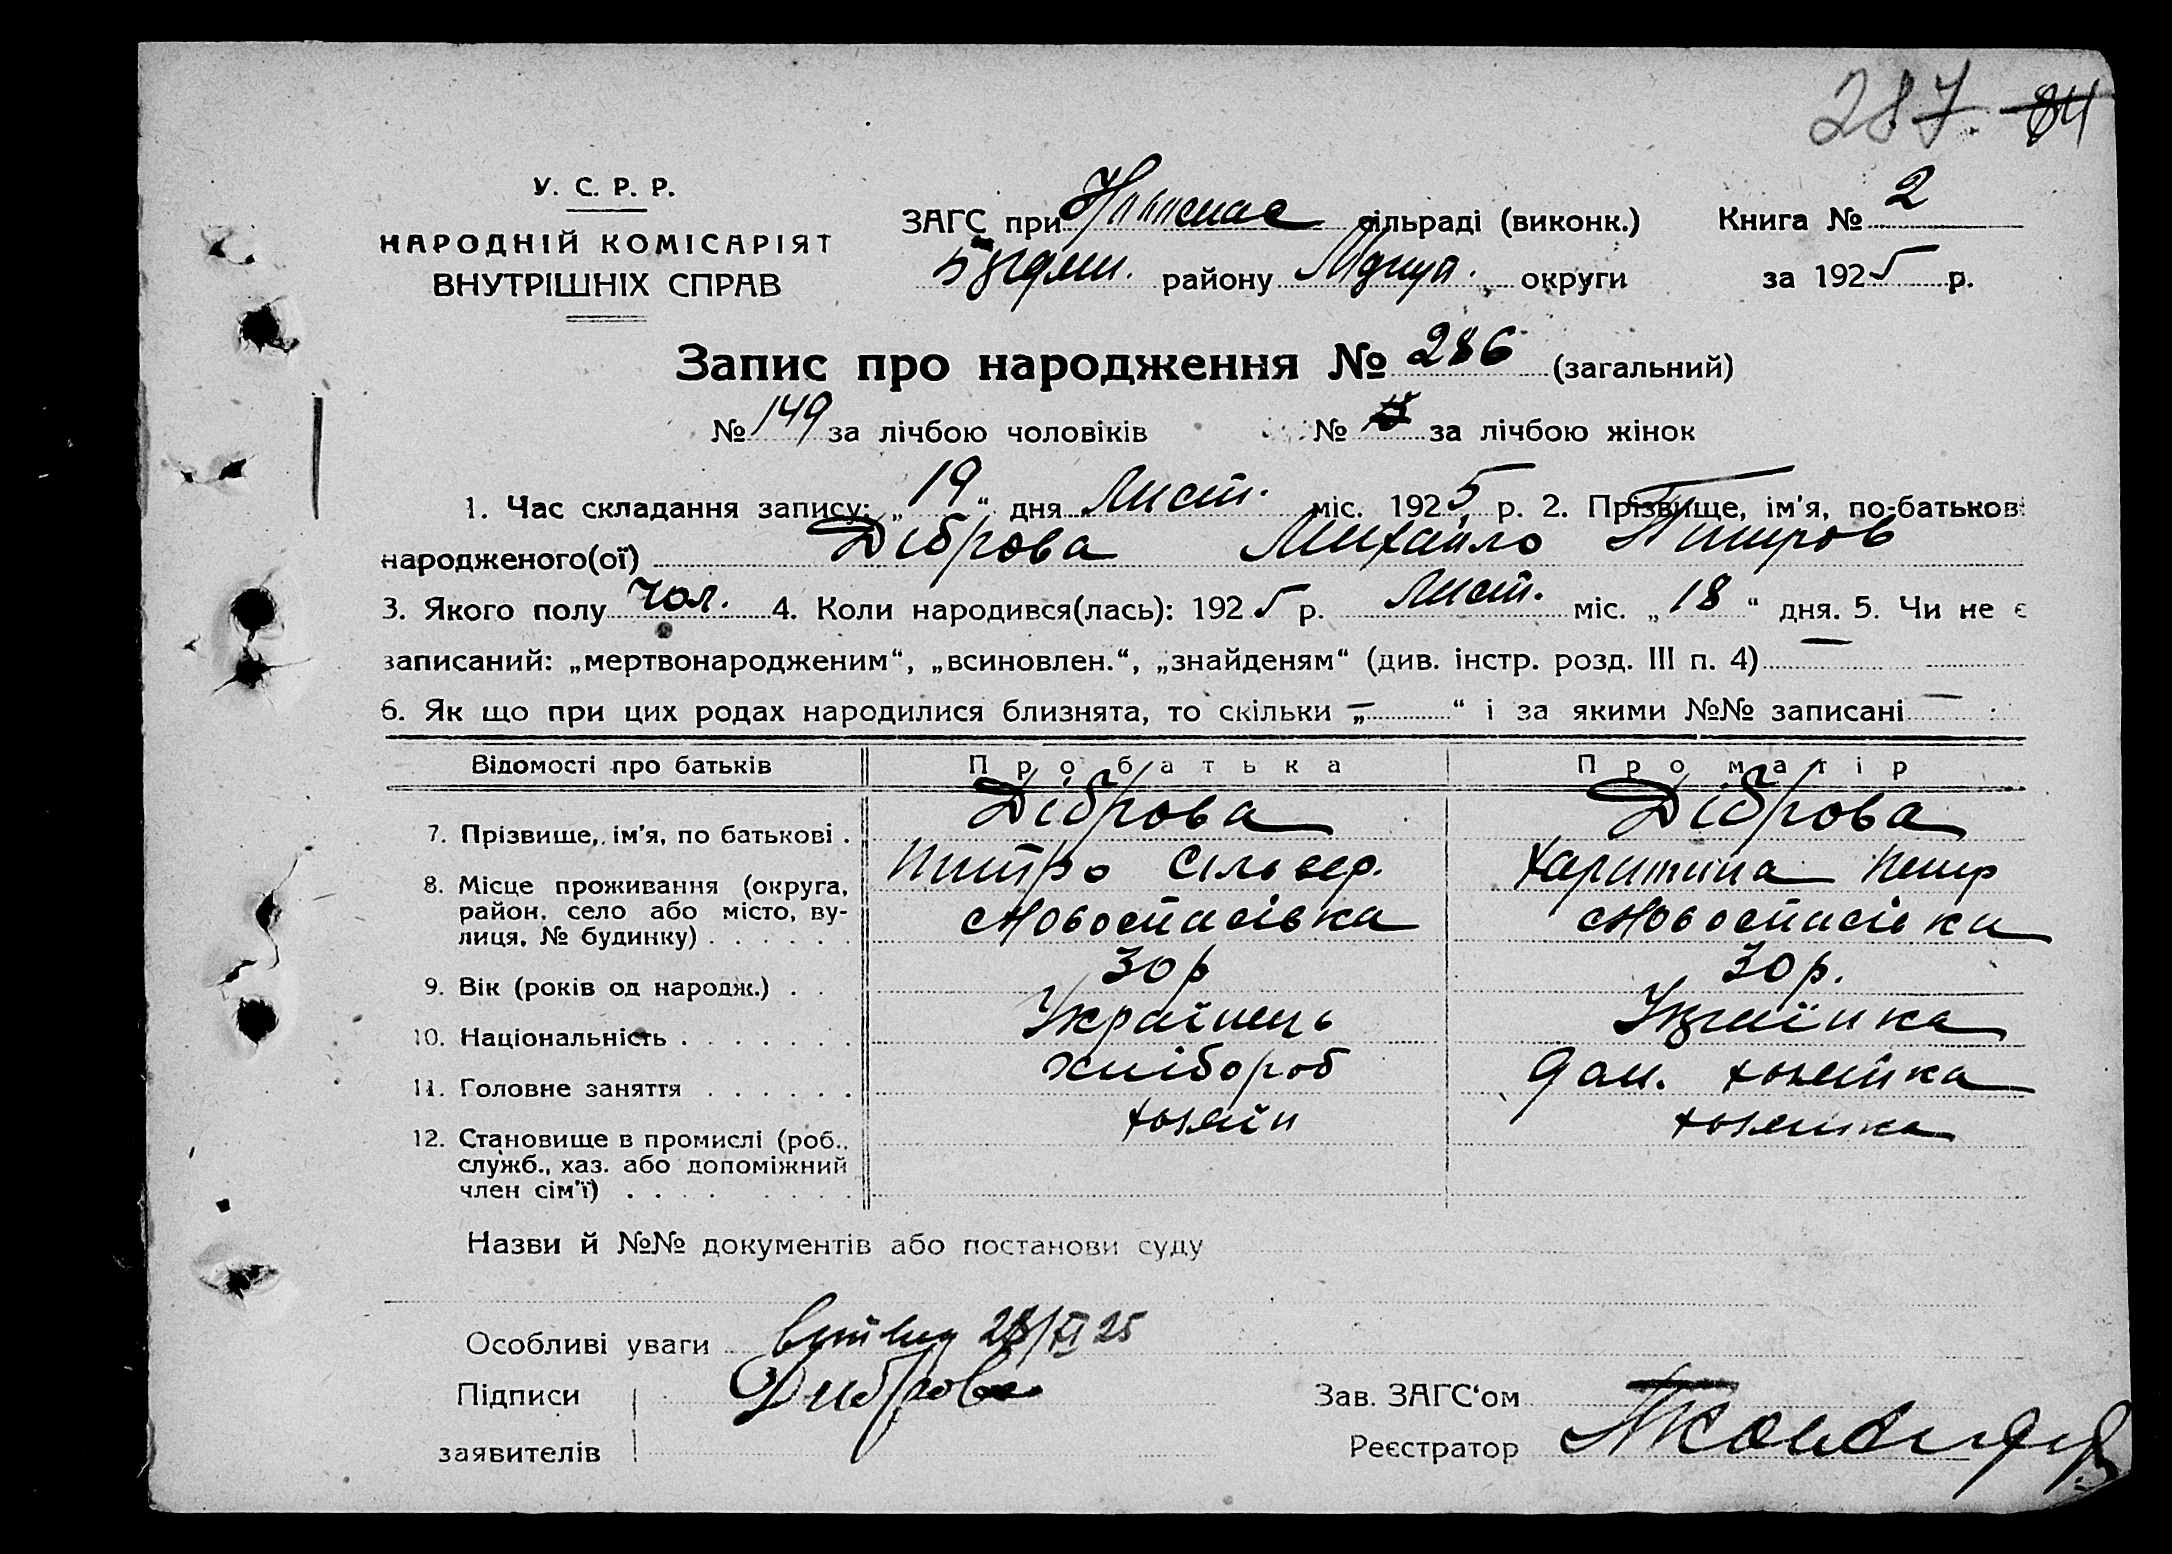 287 84
У. С. Р. Р.
НАРОДНІЙ КОМІСАРІЯТ
ВНУТРІШНІХ СПРАВ
ЗАГС при сільраді (виконк.)
району округи
Книга № 2
за 1925 р.
Запис про народження № 286 (загальний)
№ 149 за лічбою чоловіків № за лічбою жінок
1. Час складання запису: „19“ дня Лист. міс. 1925 р. 2. Прізвище, ім'я, по-батькові
народженого(ої) Діброва Михайло
3. Якого полу чол. 4. Коли народився(лась): 1925 р. Лист. міс. „18“ дня. 5. Чи не є
записаний: „мертвонародженим“, „всиновлен.“, „знайденям“ (див. інстр. розд. III п. 4) —
6. Як що при цих родах народилися близнята, то скільки „—“ і за якими №№ записані —
Відомості про батьків Про батька Про матір
7. Прізвище, ім'я, по батькові . Діброва Діброва
Харитина Петр
8. Місце проживання (округа,
район, село або місто, ву-
лиця, № будинку) . . . . . . Новоспасівка Новоспасівка
9. Вік (років од народж.) . . 30 р 30 р.
10. Національність . . . . . . . Українець Українка
11. Головне заняття . . . . . . Хлібороб дом. хозяйка
12. Становище в промислі (роб.,
служб., хаз. або допоміжний
член сім'ї) . . . . . . . . хозяїн хозяйка
Назви й №№ документів або постанови суду
Особливі уваги 28/XI 25
Підписи
заявителів
Диброва
Зав. ЗАГС'ом
Реєстратор